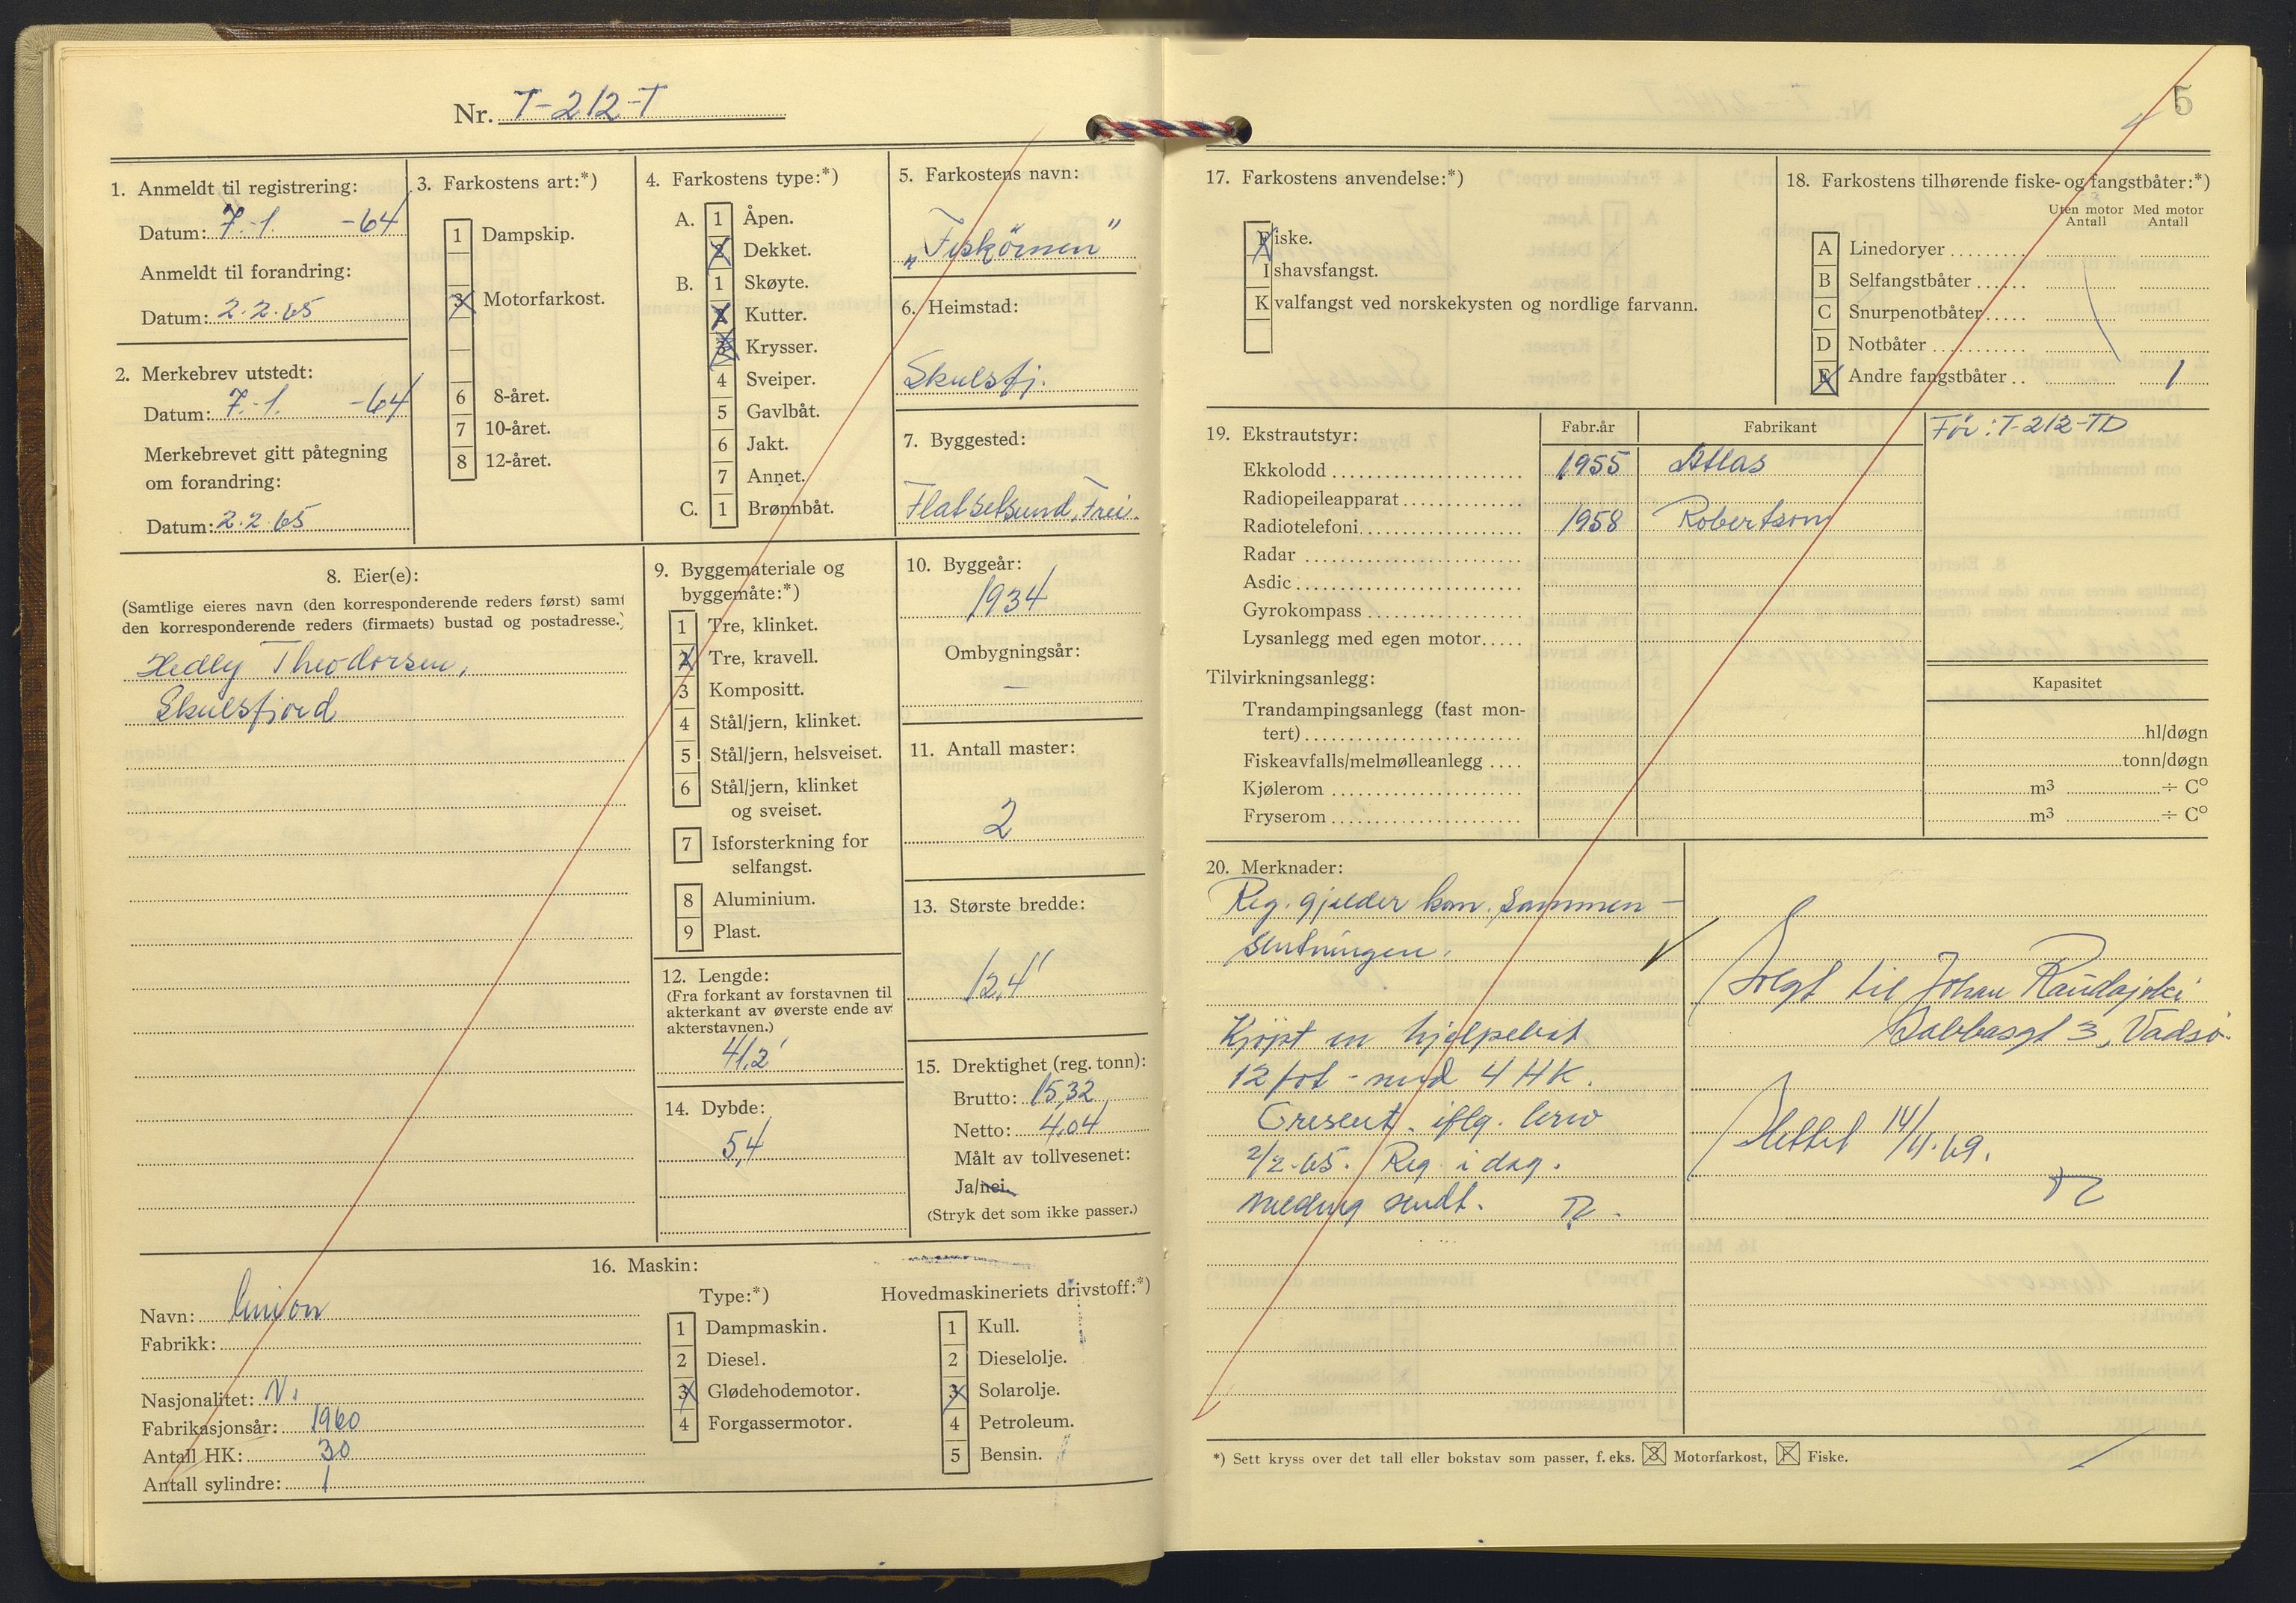 Nr. T-212-T
1. Anmeldt til registrering:
Datum: 7.-1. -64
Anmeldt til forandring:
Datum: 2.2.65
2. Merkebrev utstedt:
Datum: 7.-1. -64
Merkebrevet gitt påtegning
om forandring:
Datum: 2.2.65
3. Farkostens art:*)
1 Dampskip.
3 Motorfarkost.
6 8-året.
7 10-året.
8 12-året.
4. Farkostens type:*)
A. 1 Åpen.
2 Dekket.
B. 1 Skøyte.
2 Kutter.
3 Krysser.
4 Sveiper.
5 Gavlbåt.
6 Jakt.
7 Annet.
C. 1 Brønnbåt.
5. Farkostens navn:
„Fiskörnen"
6. Heimstad:
Skulsfj.
7. Byggested:
Flatsetsund, Frei.
8. Eier(e):
(Samtlige eieres navn (den korresponderende reders først) samt
den korresponderende reders (firmaets) bustad og postadresse.)
Hedly Theodorsen,
Skulsfjord
9. Byggemateriale og
byggemåte:*)
1 Tre, klinket.
2 Tre, kravell.
3 Kompositt.
4 Stål/jern, klinket.
5 Stål/jern, helsveiset.
6 Stål/jern, klinket
og sveiset.
7 Isforsterkning for
selfangst.
8 Aluminium.
9 Plast.
10. Byggeår:
1934
Ombygningsår:
—
11. Antall master:
2
12. Lengde:
(Fra forkant av forstavnen til
akterkant av øverste ende av
akterstavnen.)
41,2'
13. Største bredde:
12,4'
14. Dybde:
5,4
15. Drektighet (reg. tonn):
Brutto: 15,32
Netto: 4,04
Målt av tollvesenet:
Ja/nei.
(Stryk det som ikke passer.)
16. Maskin:
Navn: Union
Fabrikk:
Nasjonalitet: N.
Fabrikasjonsår: 1960
Antall HK: 30
Antall sylindre: 1
Type:*)
1 Dampmaskin.
2 Diesel.
3 Glødehodemotor.
4 Forgassermotor.
Hovedmaskineriets drivstoff:*)
1 Kull.
2 Dieselolje.
3 Solarolje.
4 Petroleum.
5 Bensin.
5
17. Farkostens anvendelse:*)
Fiske.
Ishavsfangst.
Kvalfangst ved norskekysten og nordlige farvann.
18. Farkostens tilhørende fiske- og fangstbåter:*)
Uten motor Med motor
Antall Antall
A Linedoryer
B Selfangstbåter
C Snurpenotbåter
D Notbåter
E Andre fangstbåter 1
19. Ekstrautstyr: Fabr.år Fabrikant
Før: T-212-TD
Ekkolodd 1955 Atlas
Radiopeileapparat
Radiotelefoni 1958 Robertson
Radar
Asdic
Gyrokompass
Lysanlegg med egen motor
Tilvirkningsanlegg: Kapasitet
Trandampingsanlegg (fast mon-
tert) hl/døgn
Fiskeavfalls/melmølleanlegg tonn/døgn
Kjølerom m³ ÷ C°
Fryserom m³ ÷ C°
20. Merknader:
Reg. gjelder kon. sammen-
slutningen.
Kjøpt en hjelpebåt
12 fot - med 4 HK.
Cresent. iflg. brev
2/2-65. Reg i dag.
melding sendt.
Solgt til Johan Raudajoki
Dabbasgt 3, Vadsø.
Slettet 14/11.69.
*) Sett kryss over det tall eller bokstav som passer, f. eks. 3 Motorfarkost, F Fiske.